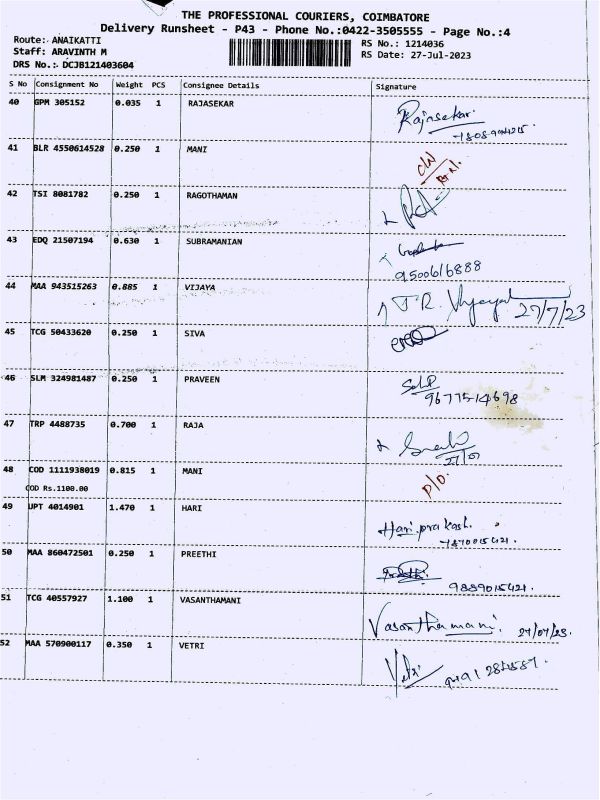 THE PROFESSIONAL COURIERS, COIMBATORE
Delivery Runsheet - P43 - Phone No.:0422-3505555 - Page No.:4
Route: ANAIKATTI
Staff: ARAVINTH M
DRS No.: DCJB121403604
RS No.: 1214036
RS Date: 27-Jul-2023
S No Consignment No Weight PCS Consignee Details Signature
40 GPM 305152 0.035 1 RAJASEKAR Rajasekar
41 BLR 4550614528 0.250 1 MANI
42 TSI 8081782 0.250 1 RAGOTHAMAN
43 EDQ 21507194 0.630 1 SUBRAMANIAN
9500616888
44 MAA 943515263 0.885 1 VIJAYA 27/7/23
45 TCG 50433620 0.250 1 SIVA
46 SLM 324981487 0.250 1 PRAVEEN
9677514698
47 TRP 4488735 0.700 1 RAJA
48 COD 1111938019 0.815 1 MANI
COD Rs.1100.00
49 UPT 4014901 1.470 1 HARI Hari prakash.
50 MAA 860472501 0.250 1 PREETHI
9889015421.
51 TCG 40557927 1.100 1 VASANTHAMANI Vasanthamani. 27/07/23.
52 MAA 570900117 0.350 1 VETRI Vetri